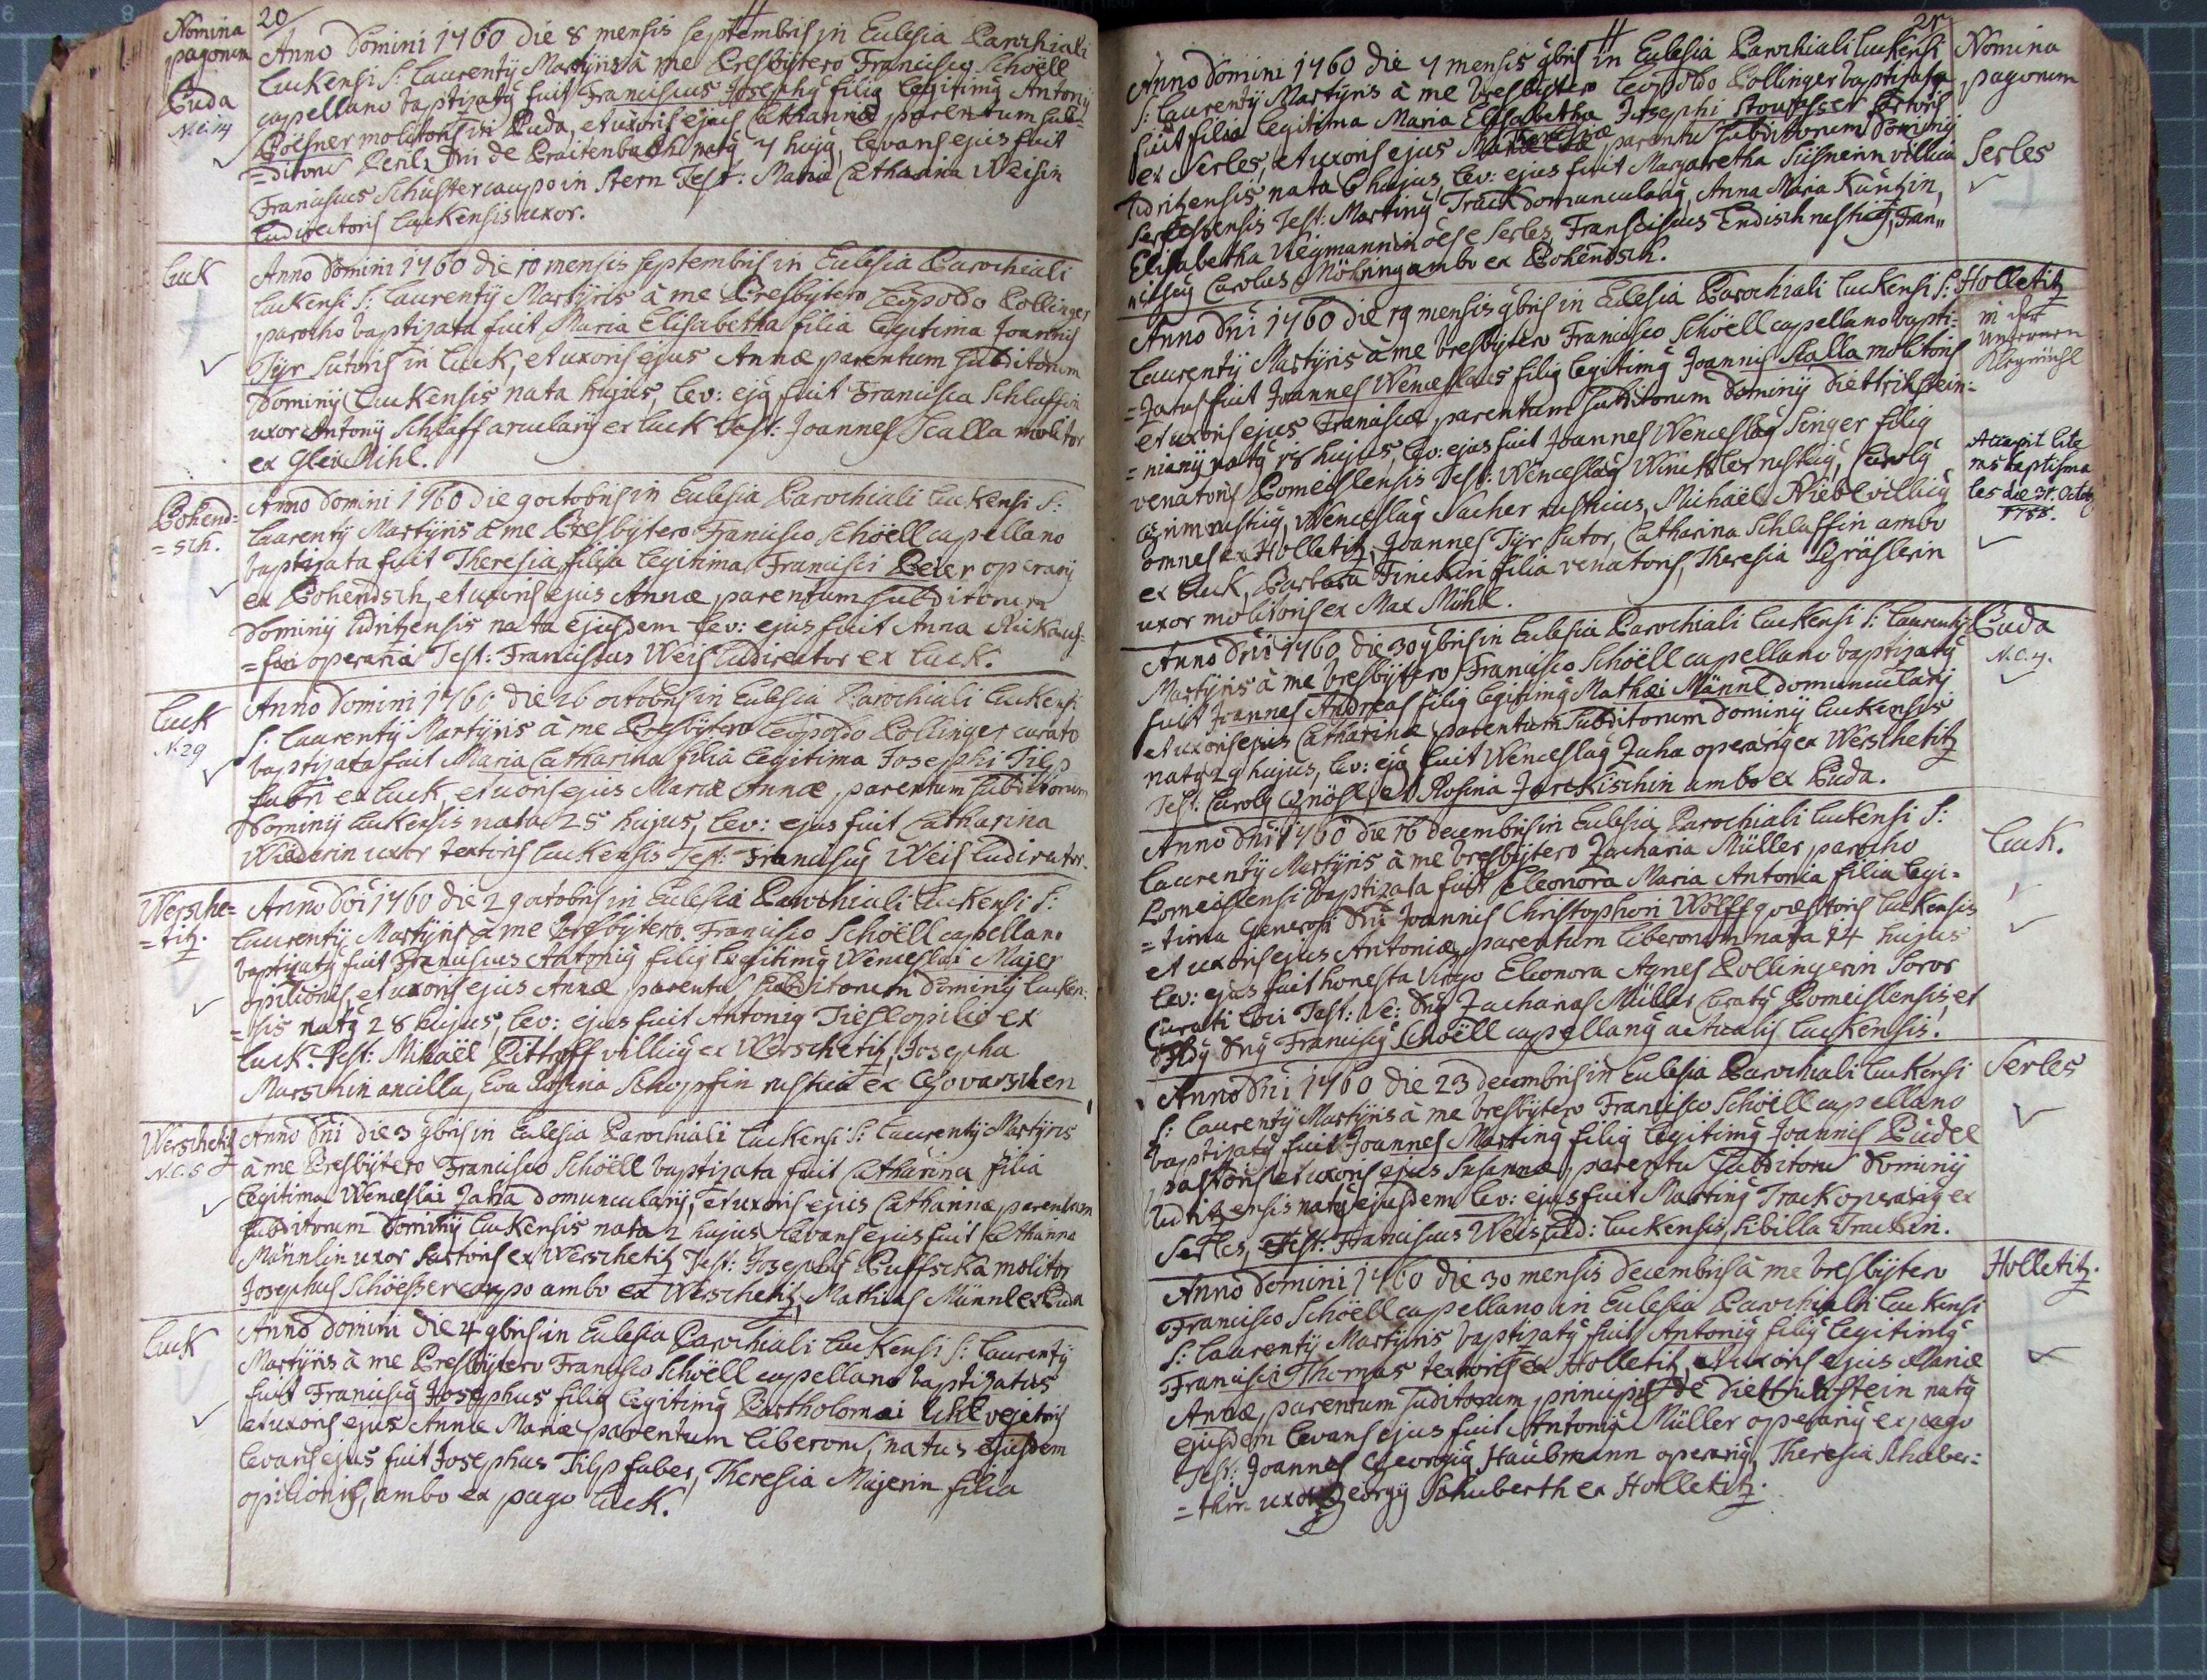 20
Nomina
pagonum
Anno Domini 1760 die 8 mensis septembris in Eclesia Parochiali
Luckensi S: Laurentÿ Martÿris à me Presbÿtero Francisco Schöell
Puda
capellano baptizatg fuit Franciscus Josephg filig legitimg Antonÿ
Pöesner molitoris in Puda, et uxoris ejus Catharinæ parentum sub=
=ditorum Dni de Braitenbach natg 7 hujg, levans ejus fuit
Franciscus Schuster caupo in Stern Test: Maria Catharina Weisin
ludirectoris Luckensis uxor.
Luck
Anno Domini 1760 die 10 mensis septembris in Eclesia Parochiali
Luckensi S: Laurentÿ Martÿris à me Presbÿtero Leopoldo Pollinger
parocho baptizata fuit Maria Elisabetha filia legitima Joannis
Tÿr sutoris in Luck, et uxoris ejus Annæ parentum subditorum
Dominÿ Luckensis nata hujus, lev: ejg fuit Francisca Schlaffin
uxor Antonÿ Schlaff arcularÿ ex Luck Test: Joannes Scalla molitor
ex Glex Mühl.
Pohend=
=sch.
Anno Domini 1760 die 9 octobris in Eclesia Parochiali Luckensi S:
Laurentÿ Martÿris à me Presbÿtero Francisco Schöell capellano
baptizata fuit Theresia filia legitima Francisci Beier operarÿ
ex Pohendsch, et uxoris ejus Annæ parentum subditorum
Dominÿ Udritzensis nata ejusdem lev: ejus fuit Anna
operaria Test: Franciscus Weis ludirector ex Luck.
Luck
N. 29
Anno Domini 1760 die 26 octobris in Eclesia Parochiali Luckensi
S: Laurentÿ Martÿris à me Presbÿtero Leopoldo Pollinger curato
baptizata fuit Maria Catharina filia legitima Josephi Tilp
fabri ex Luck, et uxoris ejus Mariæ Annæ, parentum subditorum
Dominÿ Luckensis nata 25 hujus, lev: ejus fuit Catharina
Wiederin uxor textoris Luckensis Test: Franciscg Weis ludirector.
Wersche=
=titz.
Anno Dni 1760 die 29 octobris in Eclesia Parochiali Luckensi S:
Laurentÿ Martÿris à me Presbÿtero Francisco Schöell capellano
baptizatg fuit Franciscus Antonig filig legitimg Wenceslai Majer
opilionis, et uxoris ejus Annæ parentu subditorum Dominÿ Lucken=
=sis natg 28 hujus, lev: ejus fuit Antonig Tiesl opilio ex
Luck Test: Michaël Pittroff villicg ex Werschetitz, Josepha
Marschin ancilla, Eva Rosina Schopfin rustica ex Govarschen
Werschetitz
N. C. 5
Anno Dni die 3 9bris in Eclesia Parochiali Luckensi S: Laurentÿ Martÿris
à me Presbÿtero Francisco Schöell baptizata fuit Catharina filia
legitima Wenceslai Jaha domuncularÿ, et uxoris ejus Catharinæ parentum
subditorum Dominÿ Luckensis nata 2 hujus levans ejus fuit Catharina
Männlin uxor sartoris ex Werschetitz Test: Josephg Puffscka molitor
Josephus Schöesser caupo ambo ex Werschetitz, Mathias Männl ex Puda
Luck
Anno Domini die 4 9bris in Eclesia Parochiali Luckensi S: Laurentÿ
Martÿris à me Presbÿtero Francisco Schöell capellano baptizatus
fuit Franciscg Josephus filig legitimg Bartholomæi Uhl vejetris
et uxoris ejus Annæ Mariæ parentum liberorum, natus ejusdem
levans ejus fuit Josephus Tilp faber, Theresia Majerin filia
opilionis, ambo ex pago Luck.
21
Nomina
pagonum
Anno Domini 1760 die 7 mensis 9bris in Eclesia Parochiali Luckensi
S: Laurentÿ Martÿris à me Presbÿtero Leopoldo Pollinger baptizata
fuit filia legitima Maria Elisabetha Josephi
Serles
ex Serles, et uxoris ejus parentu subditorum Dominÿ
Udritzensis, nata 6 hujus, lev: ejus fuit Margaretha Süsnerin villica
Serlesensis Test: Marting Track domuncularg, Anna Maria Kuntzin,
Elisabetha Wegmannin oes e Serles, Franciscus Endisch rusticg, Fran=
ciscg Carolus Möhring ambo ex Pohendsch.
Holletitz
in der
unteren
Anno Dni 1760 die 19 mensis 9bris in Eclesia Parochiali Luckensi S:
Laurentÿ Martÿris à me Presbÿtero Francisco Schöell capellano bapti=
=zatus fuit Joannes Wenceslaus filig legitimg Joannis Skalla molitoris
et uxoris ejus Franciscæ parentum subditorum Dominÿ Diettrihstein=
=nianÿ natg 18 hujus, lev: ejus fuit Joannes Wenceslag Singer filig
venatoris Pomeislensis Test: Wenceslag Winckler rusticg, Carolg
rusticg, Wenceslag Sacher rusticus, Michaël Niebl villicg
omnes ex Holletitz, Joannes Tÿr sutor, Catharina Schlaffin ambo
ex Luck, Barbara Finckin filia venatoris, Theresia Gräslerin
uxor molitoris ex Max Mühl.
Accepit lite
ras baptisma
les die 31. Octob
1788.
Puda
N. C. 4.
Anno Dni 1760 die 30 9bris in Eclesia Parochiali Luckensi S: Laurentÿ
Martÿris à me Presbÿtero Francisco Schöell capellano baptizatg
fuit Joannes Andreas filig legitimg Mathæi Männl domuncularÿ
et uxoris ejus Catharinæ parentum subditorum Dominÿ Luckensis
natg 29 hujus, lev: ejg fuit Wenceslag Jaha operarig ex Werschetitz
Test: Carolg Gnösl, et Rosina Jarckischin ambo ex Puda.
Luck.
Anno Dni 1760 die 16 decembris in Eclesia Parochiali Luckensi S:
Laurentÿ Martÿris à me Presbÿtero Zacharia Müller parocho
Pomeislensi baptizata fuit Eleonora Maria Antonia filia legi=
=tima Generosi Dni Joannis Christophori Wolff quæstoris Luckensis
et uxoris ejus Antoniæ, parentum liberorum nata 14 hujus
lev: ejus fuit honesta Virgo Eleonora Agnes Pollingerin soror
Curati loci Test: Ve: Dng Zacharias Müller Curatg Pomeislensis, et
Dng Franciscg Schöell capellang actualis Luckensis.
Serles
Anno Dni 1760 die 23 decembris in Eclesia Parochiali Luckensi
S: Laurentÿ Martÿris à me Presbÿtero Francisco Schöell capellano
baptizatg fuit Joannes Marting filig legitimg Joannis Püdel
pastoris et uxoris ejus Susannæ, parentu subditoru Dominÿ
Udritzensis natg ejusdem lev: ejus fuit Marting Track operarig ex
Serles, Test: Franciscus Weis Lud: Luckensis, Sibilla Trackin.
Holletitz.
Anno Domini 1760 die 30 mensis decembris à me Presbÿtero
Francisco Schöell capellano in Eclesia Parochiali Luckensi
S: Laurentÿ Martÿris baptizatg fuit Antonig filig legitimg
Francisci Thomas textoris ex Holletitz, et uxoris ejus Mariæ
Annæ, parentum suditorum principis de Diettrichstein natg
ejusdem levans ejus fuit Antonig Müller operarig ex pago
Test: Joannes Georgig Haubmann operarig, Theresia Schuber=
=thin uxor Georgÿ Schuberth ex Holletitz.